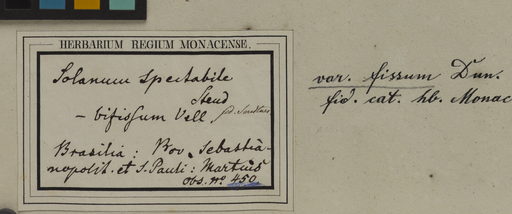 HERBARIUM REGIUM MONACENSE.
Solanum spectabile
Steud
– bifissum Vell. fid. Sendtner
Brasilia: Prov. Sebastia-
nopolit. et S. Pauli: Martius
Obs. nº 450
var. fissum Dun.
fid. cat. hb. Monac